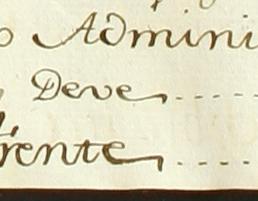 o Admini
Deve
rente